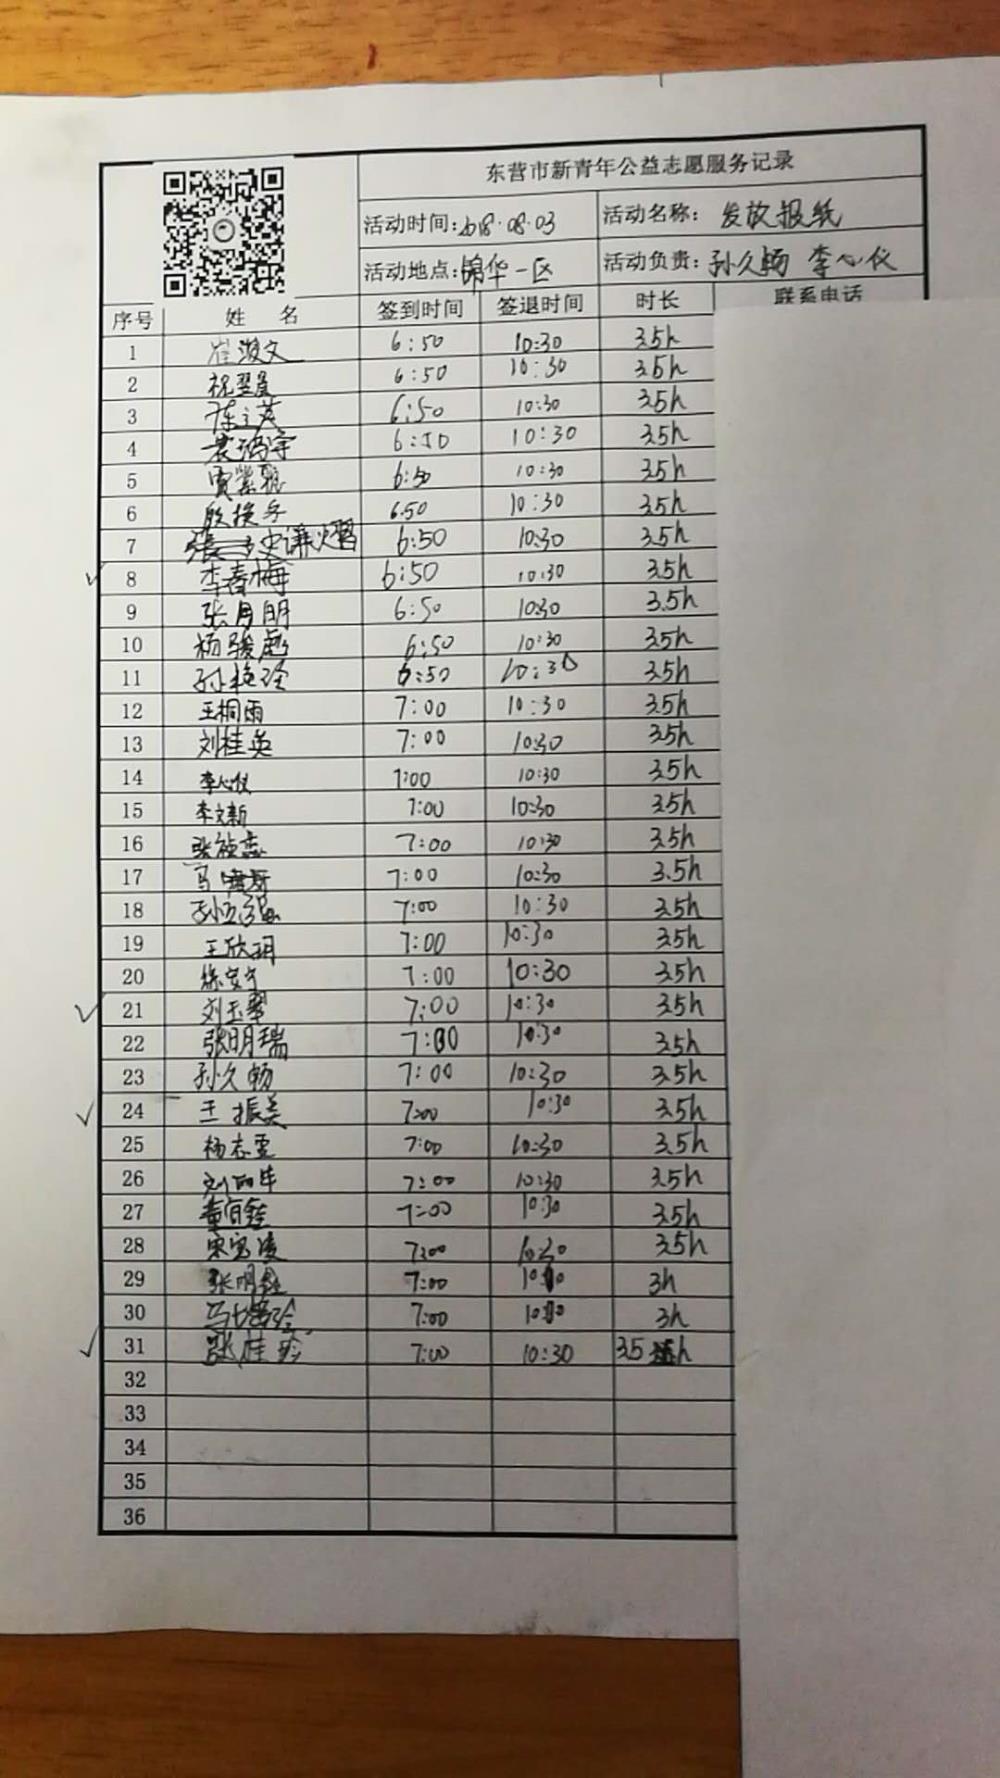 东营市新青年公益志愿服务记录
活动时间:2018.08.03 活动名称: 发放报纸
活动地点:锦华一区 活动负责: 孙久畅 李心仪
序号 姓 名 签到时间 签退时间 时长 联系电话
1 崔淑文 6:50 10:30 3.5h
2 祝翌晨 6:50 10:30 3.5h
3 陈之英 6:50 10:30 3.5h
4 6:50 10:30 3.5h
5 贾紫靓 6:50 10:30 3.5h
6 殷换乐 6:50 10:30 3.5h
7 史谦熠 6:50 10:30 3.5h
8 李春梅 6:50 10:30 3.5h
9 张月明 6:50 10:30 3.5h
10 杨骏彪 6:50 10:30 3.5h
11 孙艳玲 6:50 10:30 3.5h
12 王桐雨 7:00 10:30 3.5h
13 刘桂英 7:00 10:30 3.5h
14 李心仪 7:00 10:30 3.5h
15 李文新 7:00 10:30 3.5h
16 张祯蕊 7:00 10:30 3.5h
17 马 7:00 10:30 3.5h
18 孙立强 7:00 10:30 3.5h
19 王欣玥 7:00 10:30 3.5h
20 徐安宁 7:00 10:30 3.5h
21 刘玉翠 7:00 10:30 3.5h
22 张明瑞 7:00 10:30 3.5h
23 孙久畅 7:00 10:30 3.5h
24 王振美 7:00 10:30 3.5h
25 杨志雯 7:00 10:30 3.5h
26 刘 7:00 10:30 3.5h
27 董 7:00 10:30 3.5h
28 宋宝凌 7:00 10:30 3.5h
29 张明 7:00 3h
30 马 7:00 3h
31 张桂珍 7:00 10:30 3.5h
32
33
34
35
36